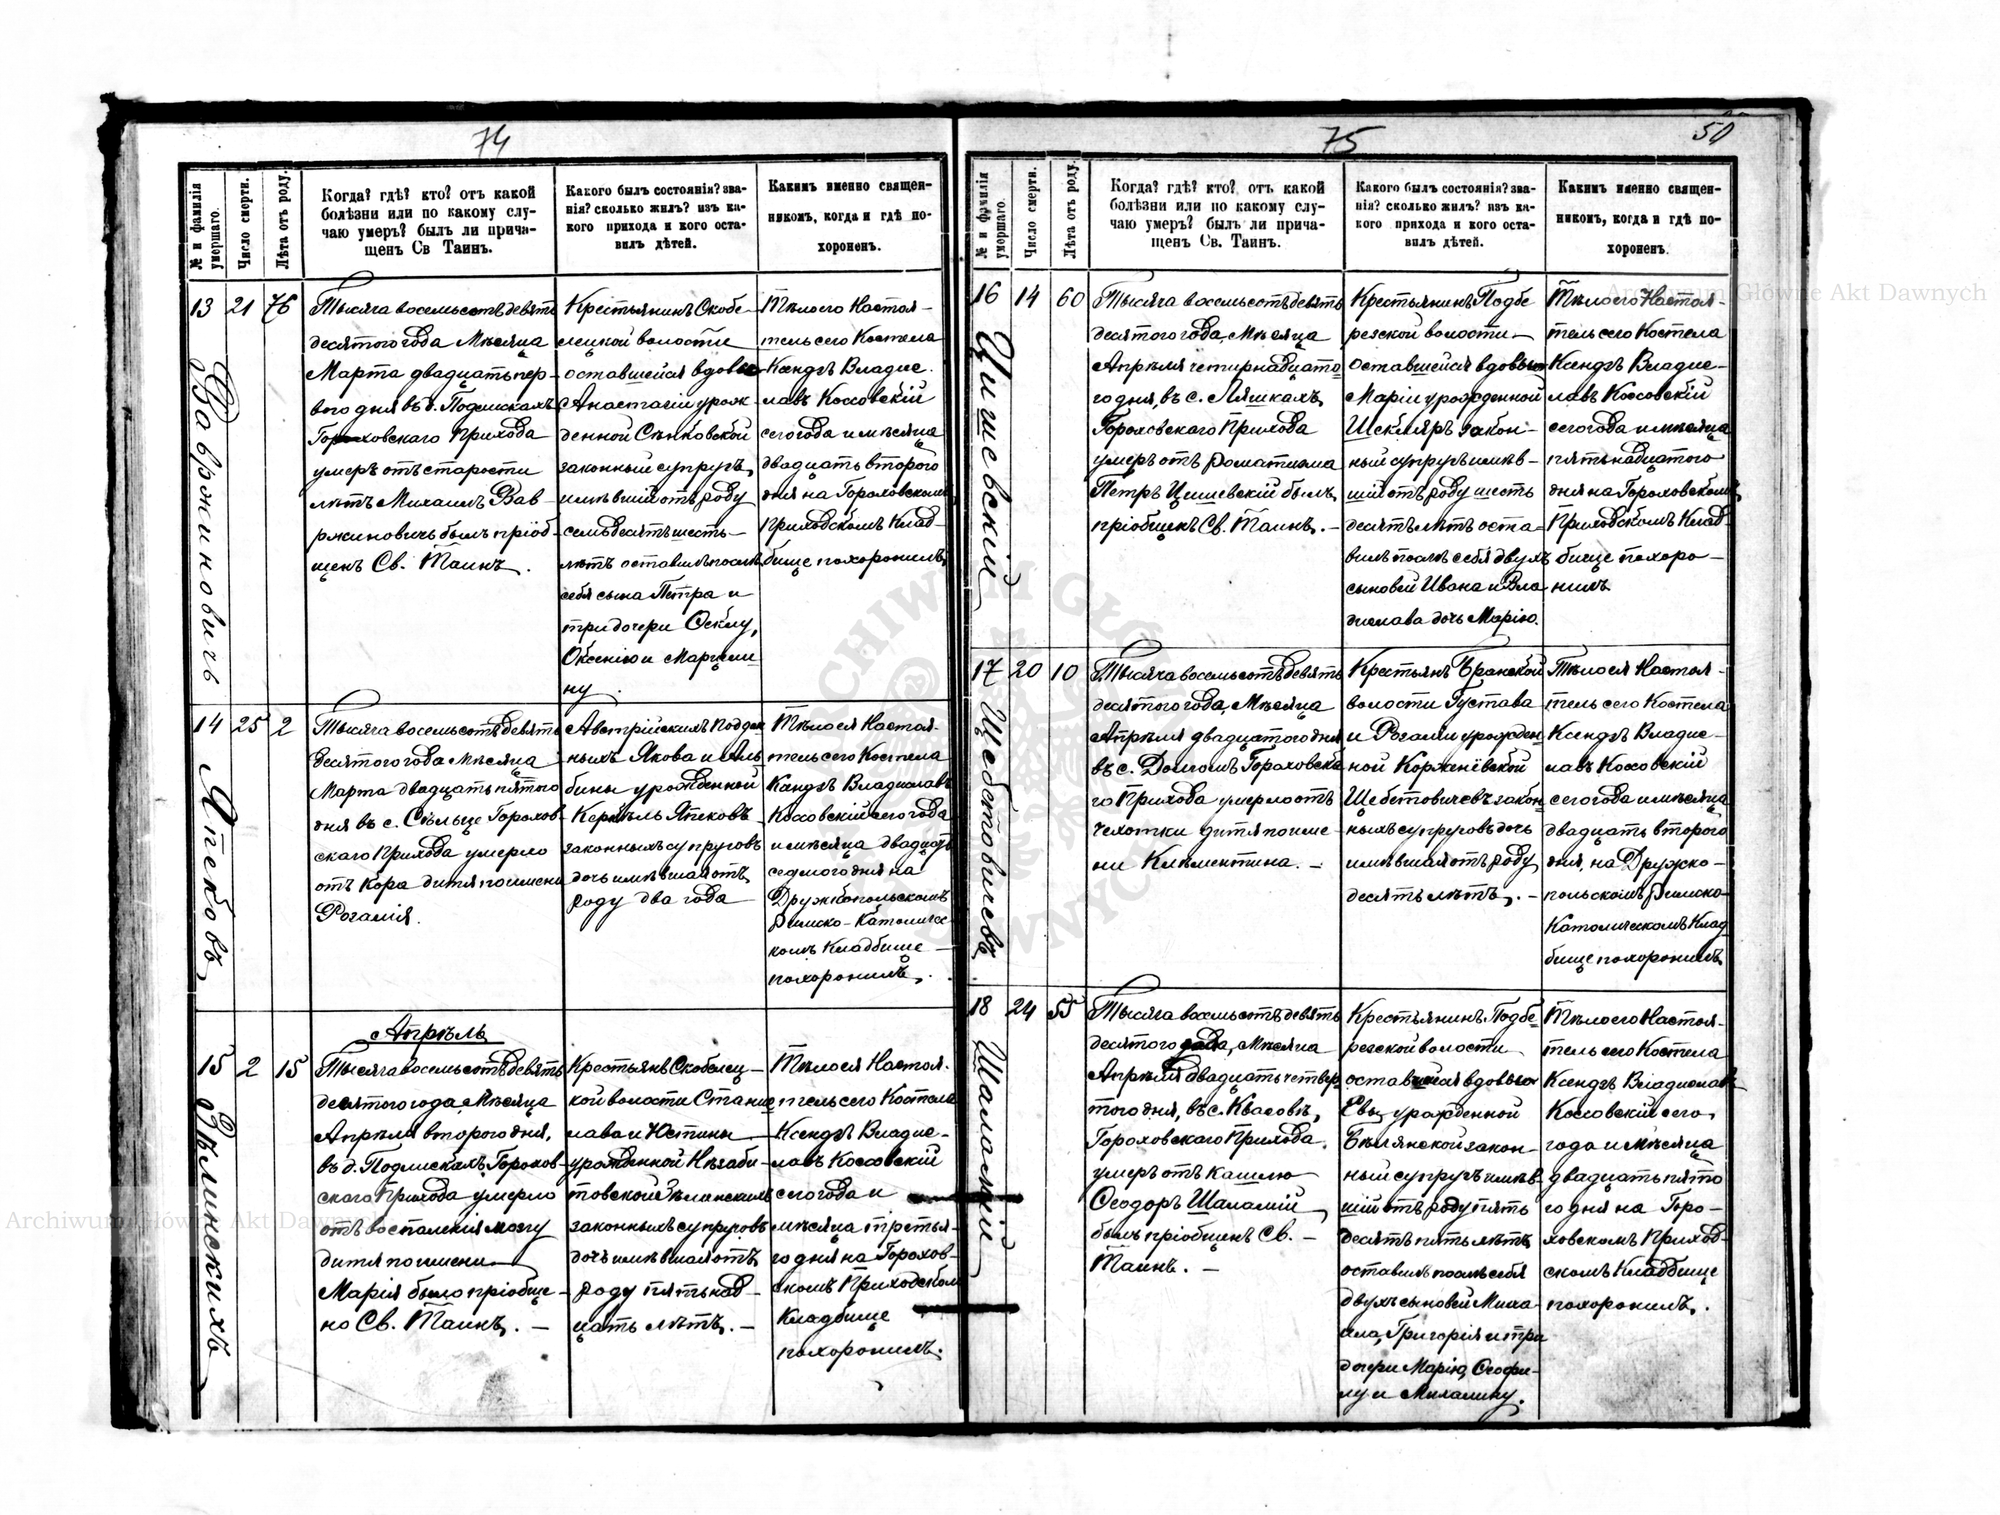 74
№ и фамилія умершаго.
Число смерти.
Лѣта отъ роду.
Когда? гдѣ? кто? отъ какой
болѣзни или по какому слу-
чаю умеръ? былъ ли прича-
щенъ Св Таинъ.
Какого былъ состоянія? зва-
нія? сколько жилъ? изъ ка-
кого прихода и кого оста-
вилъ дѣтей.
Какимъ именно священ-
никомъ, когда и гдѣ по-
хороненъ.
13
Вавржиновичъ
21
76
Тысяча восемьсотъ девять
десятого года Мѣсяца
Марта двадцать пер-
вого дня въ д. Подлискахъ
Гороховскаго Прихода
умеръ отъ старости
лѣтъ Михаилъ Вав-
ржиновичъ былъ пріоб-
щенъ Св. Таинъ.
Крестьянинъ Скобе-
лецкой волости
оставшейся вдовы
Анастасіи урож-
денной Сѣнковской
законный супругъ,
имѣвшій отъ роду
семьдесятъ шесть
лѣтъ оставилъ послѣ
себя сына Петра и
три дочери Осклу,
Оксенію и Марцели
ну.
Тѣло его Настоя-
тель сего Костела
Ксендзъ Владис-
лавъ Коссовскій
сего года и мѣсяца
двадцать второго
дня на Гороховскомъ
Приходскомъ Клад-
бище похоронилъ,
14
Япековъ
25
2
Тысяча восемьсотъ девять
десятого года Мѣсяца
Марта двадцать пятого
дня въ с. Сѣльце Горохов-
скаго Прихода умерло
отъ Кора дитя по имени
Розалія.
Австрійскихъ поддан
ныхъ Якова и Аль
бины урожденной
Керкѣль Япековъ
законныхъ супруговъ
дочь имѣвшая отъ
роду два года
Тѣло ея Настоя-
тель сего Костела
Ксендзъ Владиславъ
Коссовскій сего года
и мѣсяца двадцать
седмого дня на
Дружкопольскомъ
Римско-Католичес
комъ Кладбище
похоронилъ.
Апрѣль
15
Зѣлинскихъ
2
15
Тысяча восемьсотъ девять
десятого года, Мѣсяца
Апрѣля второго дня,
въ д. Подлискахъ Горохов-
скаго Прихода умерло
отъ воспаленія мозгу
дитя по имени
Марія было пріобще-
но Св. Таинъ. —
Крестьянъ Скобелец-
кой волости Станис
лава и Юстины
урожденной Нѣзаби-
товской Зѣлинскихъ
законныхъ супруговъ
дочь имѣвшая отъ
роду пятьнад-
цать лѣтъ. —
Тѣло ея Настоя-
тель сего Костела
Ксендзъ Владис-
лавъ Коссовскій
сего года и
мѣсяца третья-
го дня на Горохов-
скомъ Приходском
Кладбище
похоронилъ.
75
50
№ и фамилія умершаго.
Число смерти.
Лѣта отъ роду.
Когда? гдѣ? кто? отъ какой
болѣзни или по какому слу-
чаю умеръ? былъ ли прича-
щенъ Св. Таинъ.
Какого былъ состоянія? зва-
нія? сколько жилъ? изъ ка-
кого прихода и кого оста-
вилъ дѣтей.
Какимъ именно священ-
никомъ, когда и гдѣ по-
хороненъ.
16
Цишевскій
14
60
Тысяча восемьсотъ девять
десятого года, Мѣсяца
Апрѣля четирнадцато
го дня, въ с. Ляшкахъ,
Гороховскаго Прихода
умеръ отъ роматизма
Петръ Цишевскій былъ
пріобщенъ Св. Таинъ. —
Крестьянинъ Подбе
резской волости
оставшейся вдовы
Маріи урожденной
Шекляръ закон-
ный супругъ имѣв-
шій отъ роду шесть
десятъ лѣтъ оста-
вилъ послѣ себя двухъ
сыновей Ивана и Вла
дислава дочь Марію.
Тѣло его Настоя-
тель сего Костела
Ксендзъ Владис-
лавъ Коссовскій
сего года и мѣсяца
пятьнадцатого
дня на Гороховскомъ
Приходскомъ Клад-
бище похоро-
нилъ
17
Щебетовичевъ
20
10
Тысяча восемьсотъ девять
десятого года, Мѣсяца
Апрѣля двадцатого дня
въ с. Долгомъ Гороховска
го Прихода умерло отъ
чехотки дитя по име-
ни Клѣментина. —
Крестьянъ Бранской
волости Густава
и Розаліи урожден
ной Корженёвской
Щебетовичевъ закон-
ныхъ супруговъ дочь
имѣвшая отъ роду
десять лѣтъ. —
Тѣло ея Настоя-
тель сего Костела
Ксендзъ Владис-
лавъ Коссовскій
сего года и мѣсяца
двадцать второго
дня, на Дружко-
польскомъ Римско-
Католическомъ Клад
бище похоронилъ
18
Шаламай
24
55
Тысяча восемьсотъ девять
десятого года, Мѣсяца
Апрѣля двадцать четвер
того дня, въ с. Квасовѣ,
Гороховскаго Прихода
умеръ отъ кашлю
Ѳеодоръ Шаламай
былъ пріобщенъ Св. —
Таинъ. —
Крестьянинъ Подбе-
резской волости
оставшейся вдовы
Евы урожденной
Бѣлянской закон-
ный супругъ имѣв-
шій отъ роду пять
десятъ пять лѣтъ
оставилъ послѣ себя
двухъ сыновей Миха-
ила, Григорія и три
дочери Марію, Ѳеофи-
лу и Миланину.
Тѣло его Настоя-
тель сего Костела
Ксендзъ Владиславъ
Коссовскій сего
года и мѣсяца
двадцать пято
го дня на Горо-
ховскомъ Приход-
скомъ Кладбище
похоронилъ.
Archiwum Główne Akt Dawnych
Archiwum Główne Akt Dawnych